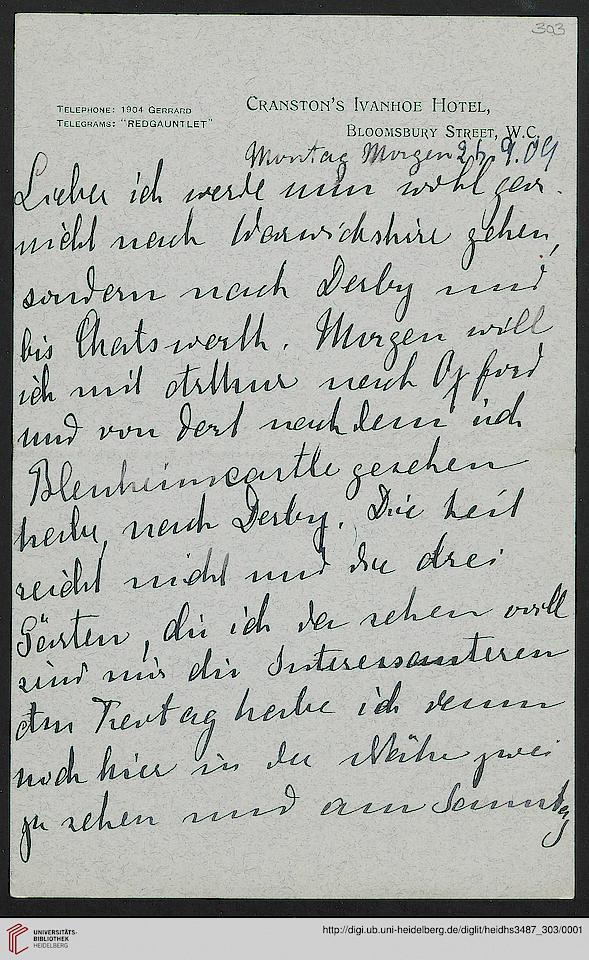 303
TELEPHONE: 1904 GERRARD
TELEGRAMS: "REDGAUNTLET"
CRANSTON'S IVANHOE HOTEL,
BLOOMSBURY STREET, W.C.
Montag Morgen 9.09
Lieber ich werde nun wohl gar
nicht nach Warwickshire gehen,
sondern nach Derby und
bis Chatsworth. Morgen will
ich mit Arthur nach Oxford
und von dort nachdem ich
Blenheimcastle gesehen
habe, nach Derby. Die Zeit
reicht nicht und die drei
Gärten, die ich da sehen will
sind mir die Interessanteren
Am Freitag habe ich dann
noch hier in der Nähe zwei
zu sehen und am Sonntag
UNIVERSITÄTS-
BIBLIOTHEK
HEIDELBERG
http://digi.ub.uni-heidelberg.de/diglit/heidhs3487_303/0001